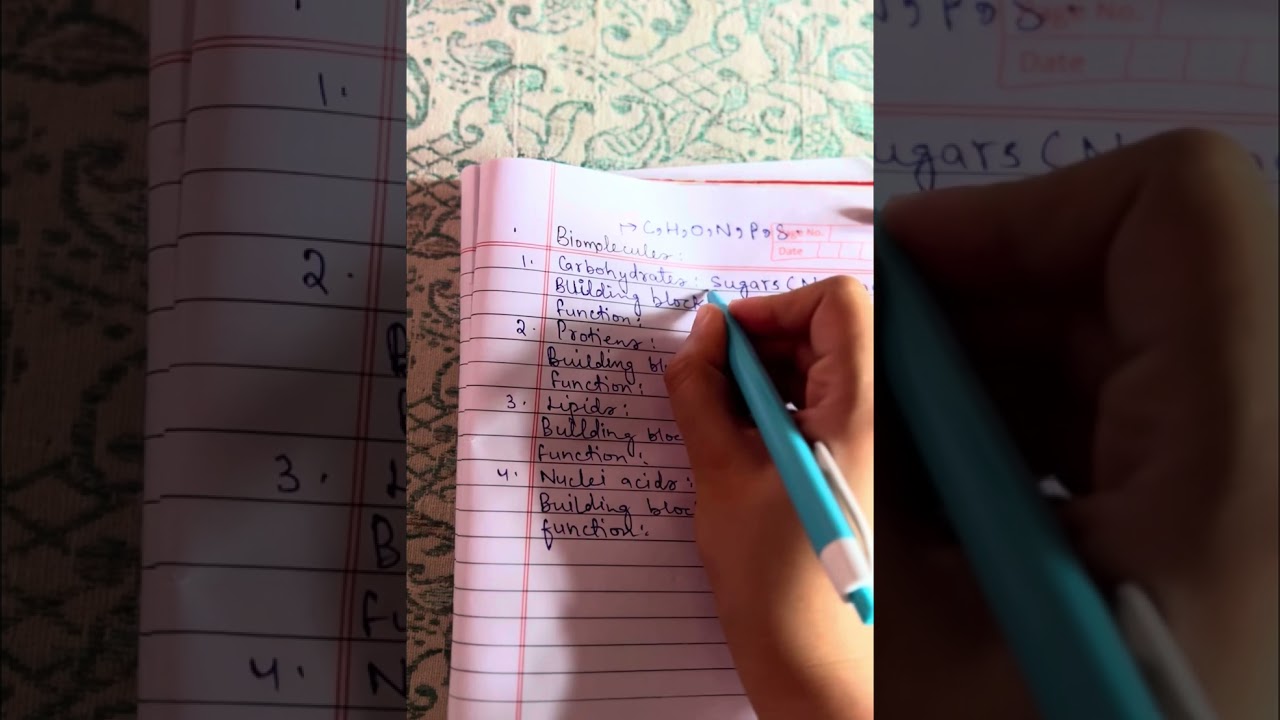 → C, H, O, N, P, S.
Page No.
Date
Biomolecules:
1. Carbohydrates: Sugars (
Building block
function:
2. Protiens:
Building blo
function:
3. Lipids:
Building bloc
function:
4. Nuclei acids:
Building bloc
function: